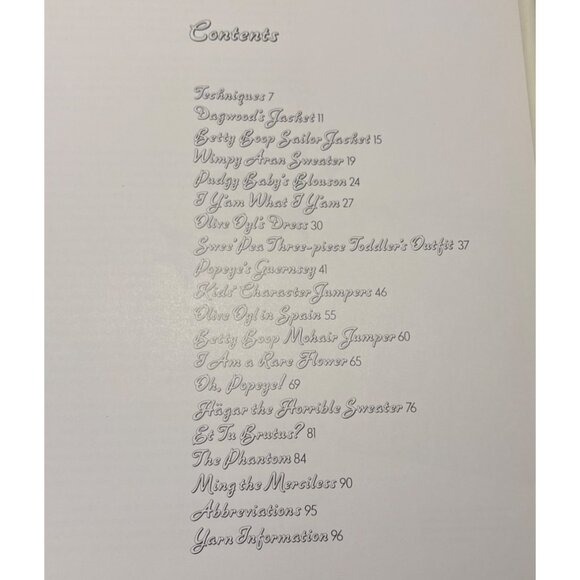 Contents
Techniques 7
Dagwood's Jacket 11
Betty Boop Sailor Jacket 15
Wimpy Aran Sweater 19
Pudgy Baby's Blouson 24
I Y'am What I Y'am 27
Olive Oyl's Dress 30
Swee' Pea Three-piece Toddler's Outfit 37
Popeye's Guernsey 41
Kids' Character Jumpers 46
Olive Oyl in Spain 55
Betty Boop Mohair Jumper 60
I Am a Rare Flower 65
Oh, Popeye! 69
Hägar the Horrible Sweater 76
Et Tu Brutus? 81
The Phantom 84
Ming the Merciless 90
Abbreviations 95
Yarn Information 96